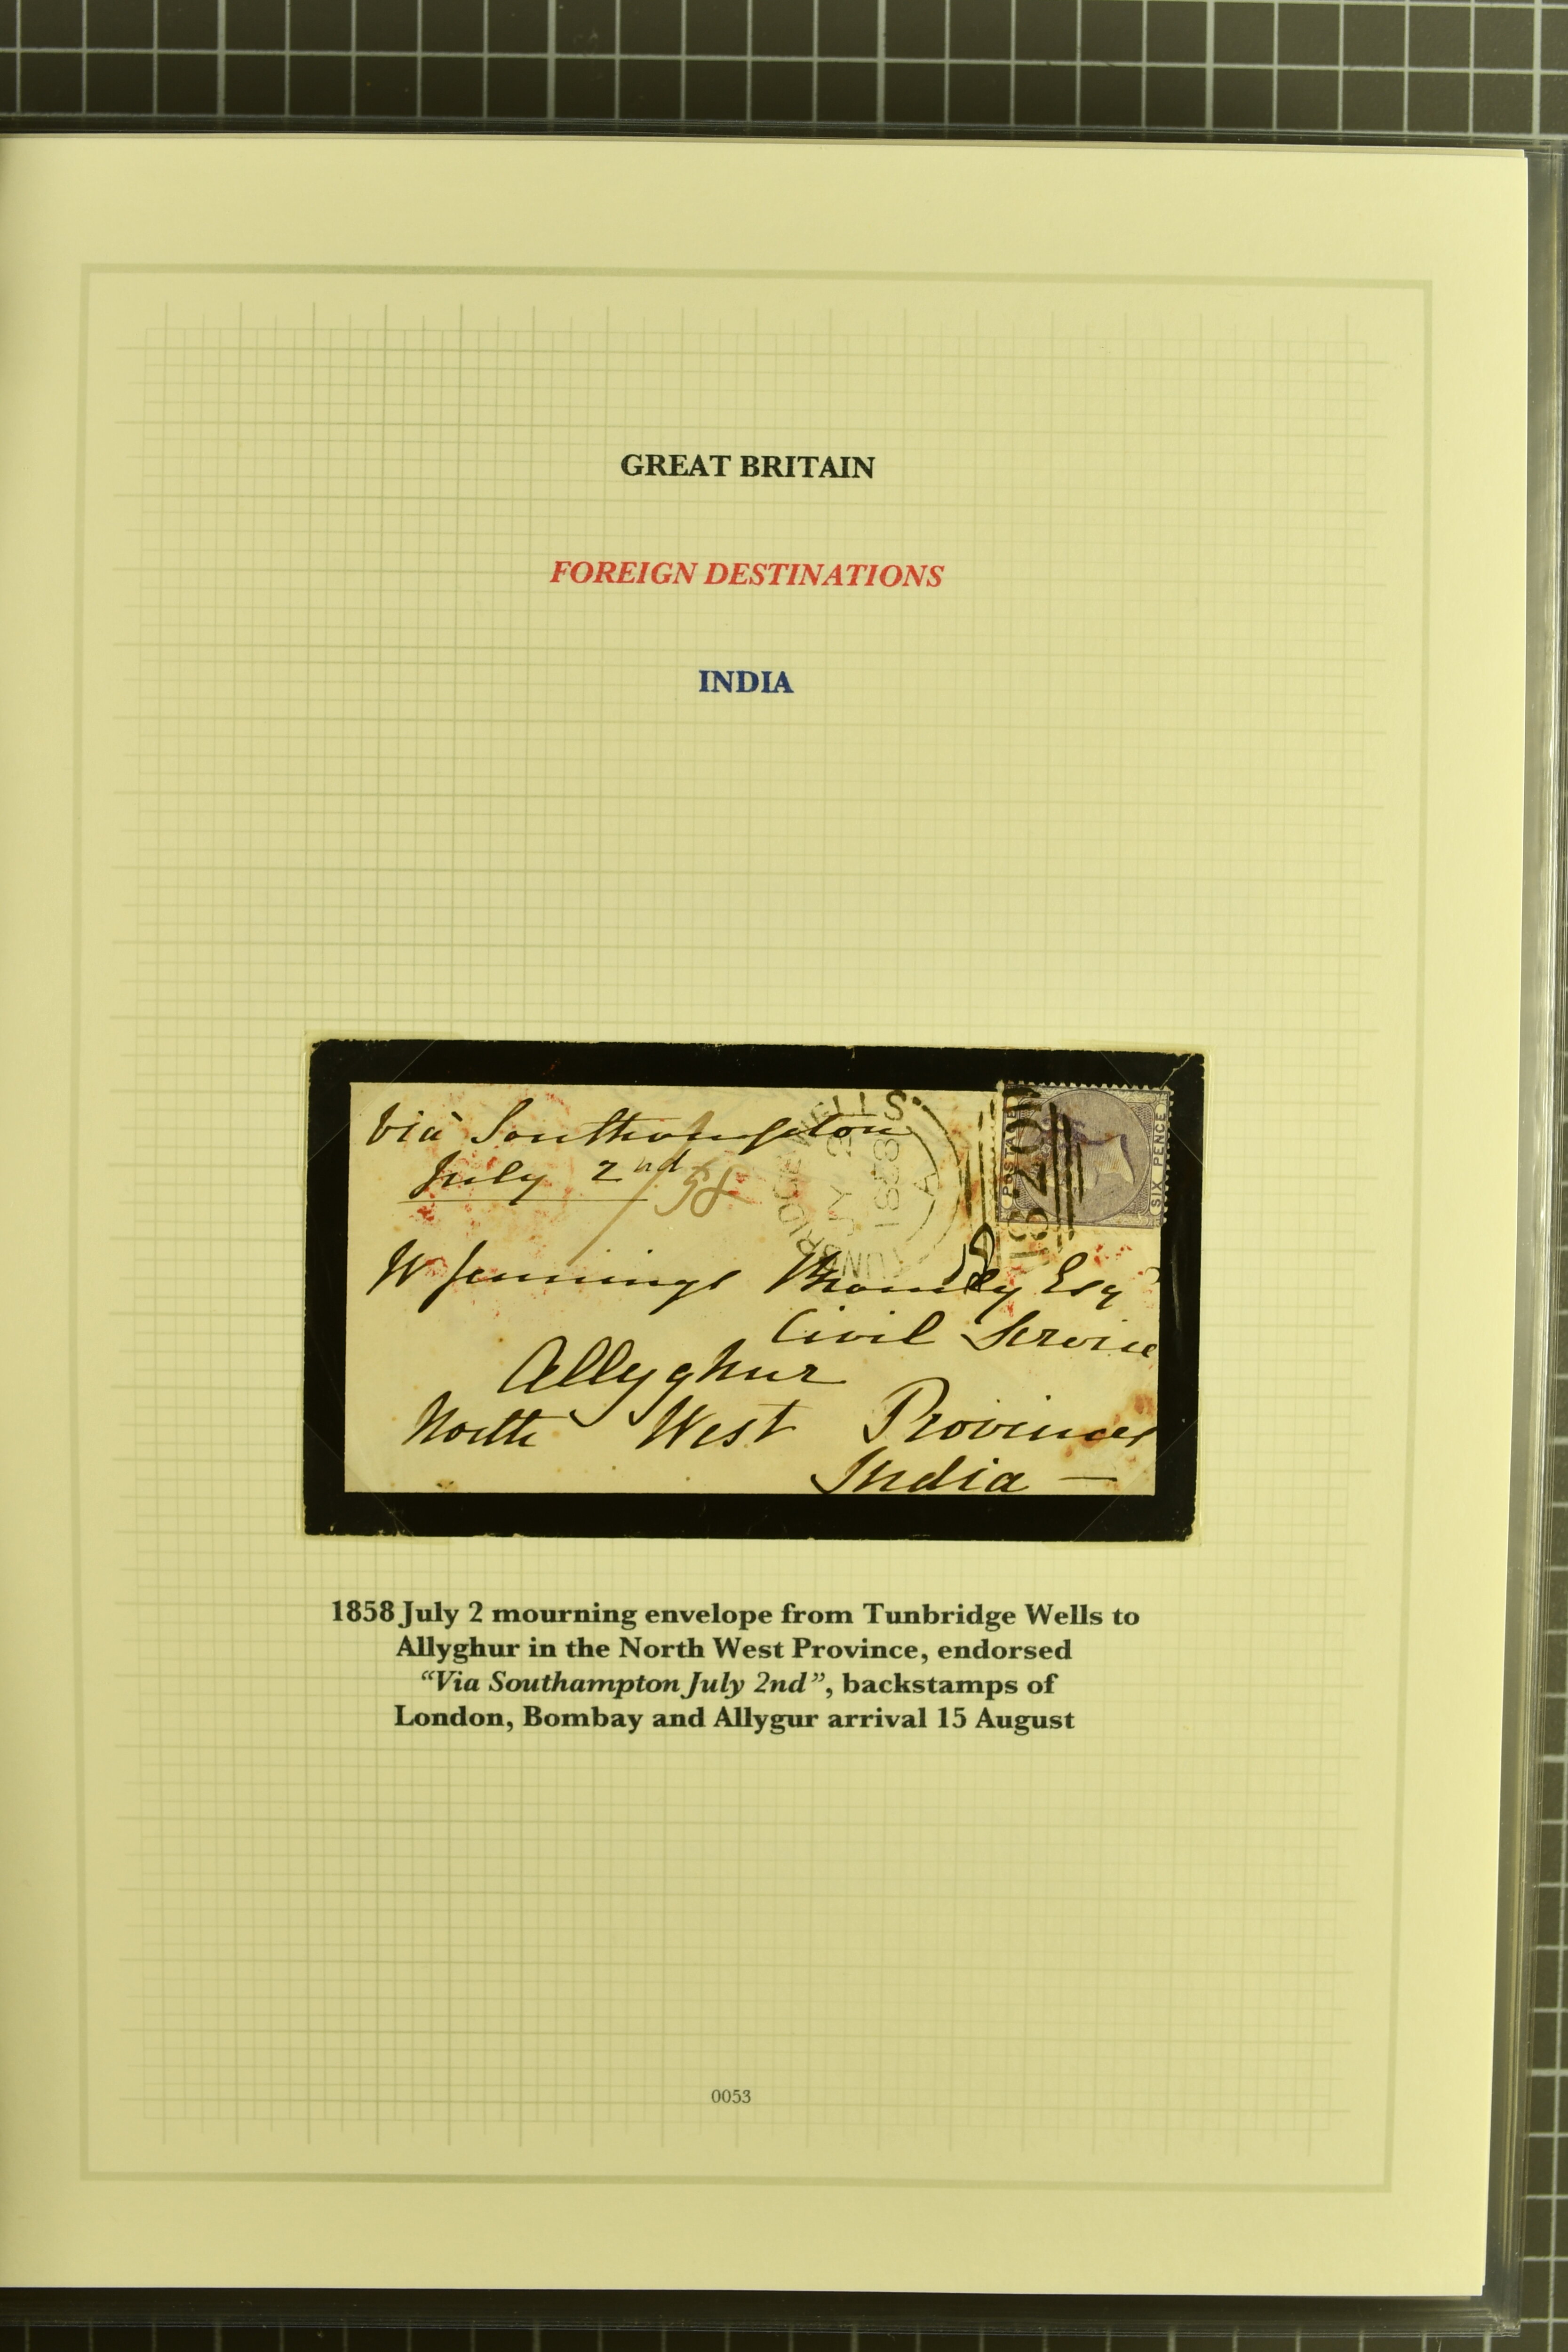 GREAT BRITAIN
FOREIGN DESTINATIONS
INDIA
Via Southampton
July 2nd
/58
WELLS
JY 2
1858
A
POSTAGE
SIX PENCE
W Jennings Esqr
Civil Service
Allyghur
North West Provinces
India —
1858 July 2 mourning envelope from Tunbridge Wells to
Allyghur in the North West Province, endorsed
“Via Southampton July 2nd”, backstamps of
London, Bombay and Allygur arrival 15 August
0053